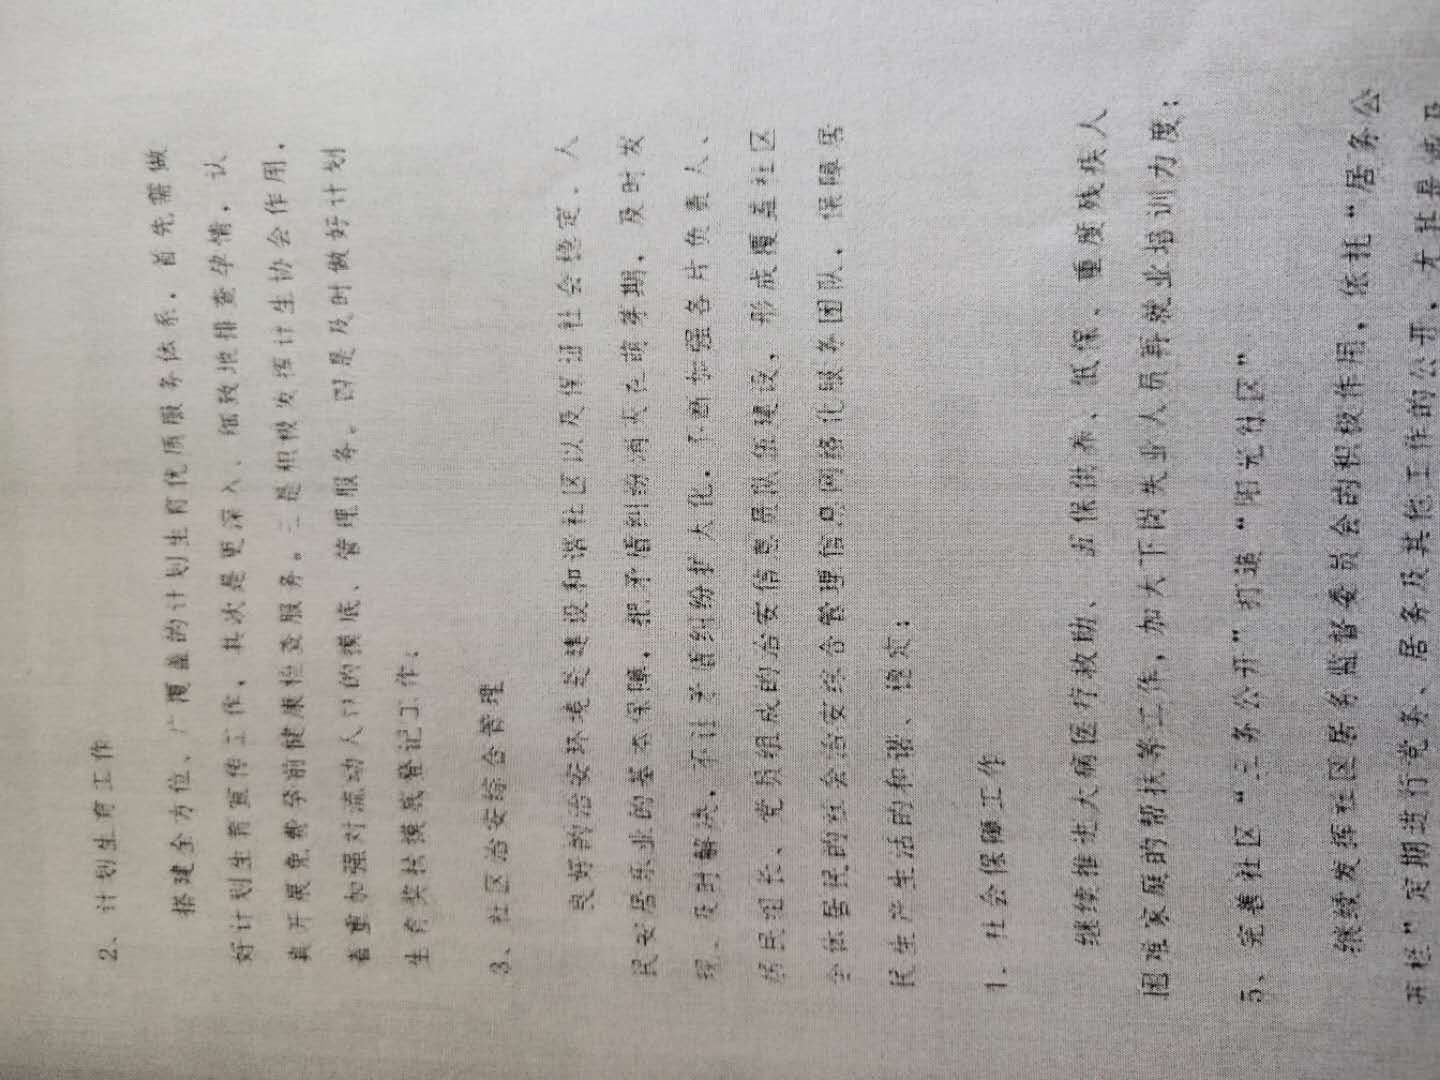 2、计划生育工作
搭建全方位、广覆盖的计划生育优质服务体系，首先需做
好计划生育宣传工作，其次是更深入、细致地排查孕情，认
真开展免费孕前健康检查服务。三是积极发挥计生协会作用，
着重加强对流动人口的摸底、管理服务。四是及时做好计划
生育奖扶摸底登记工作；
3、社区治安综合管理
良好的治安环境是建设和谐社区以及保证社会稳定、人
民安居乐业的基本保障，把矛盾纠纷消灭在萌芽期，及时发
现、及时解决，不让矛盾纠纷扩大化，不断加强各片负责人、
居民组长、党员组成的治安信息员队伍建设，形成覆盖社区
全体居民的社会治安综合管理信息网络化服务团队，保障居
民生产生活的和谐、稳定；
4、社会保障工作
继续推进大病医疗救助、五保供养、低保、重度残疾人
困难家庭的帮扶等工作，加大下岗失业人员再就业培训力度；
5、完善社区“三务公开”打造“阳光社区”
继续发挥社区居务监督委员会的积极作用，依托“居务公
开栏”定期进行党务、居务及其他工作的公开，尤其是涉及